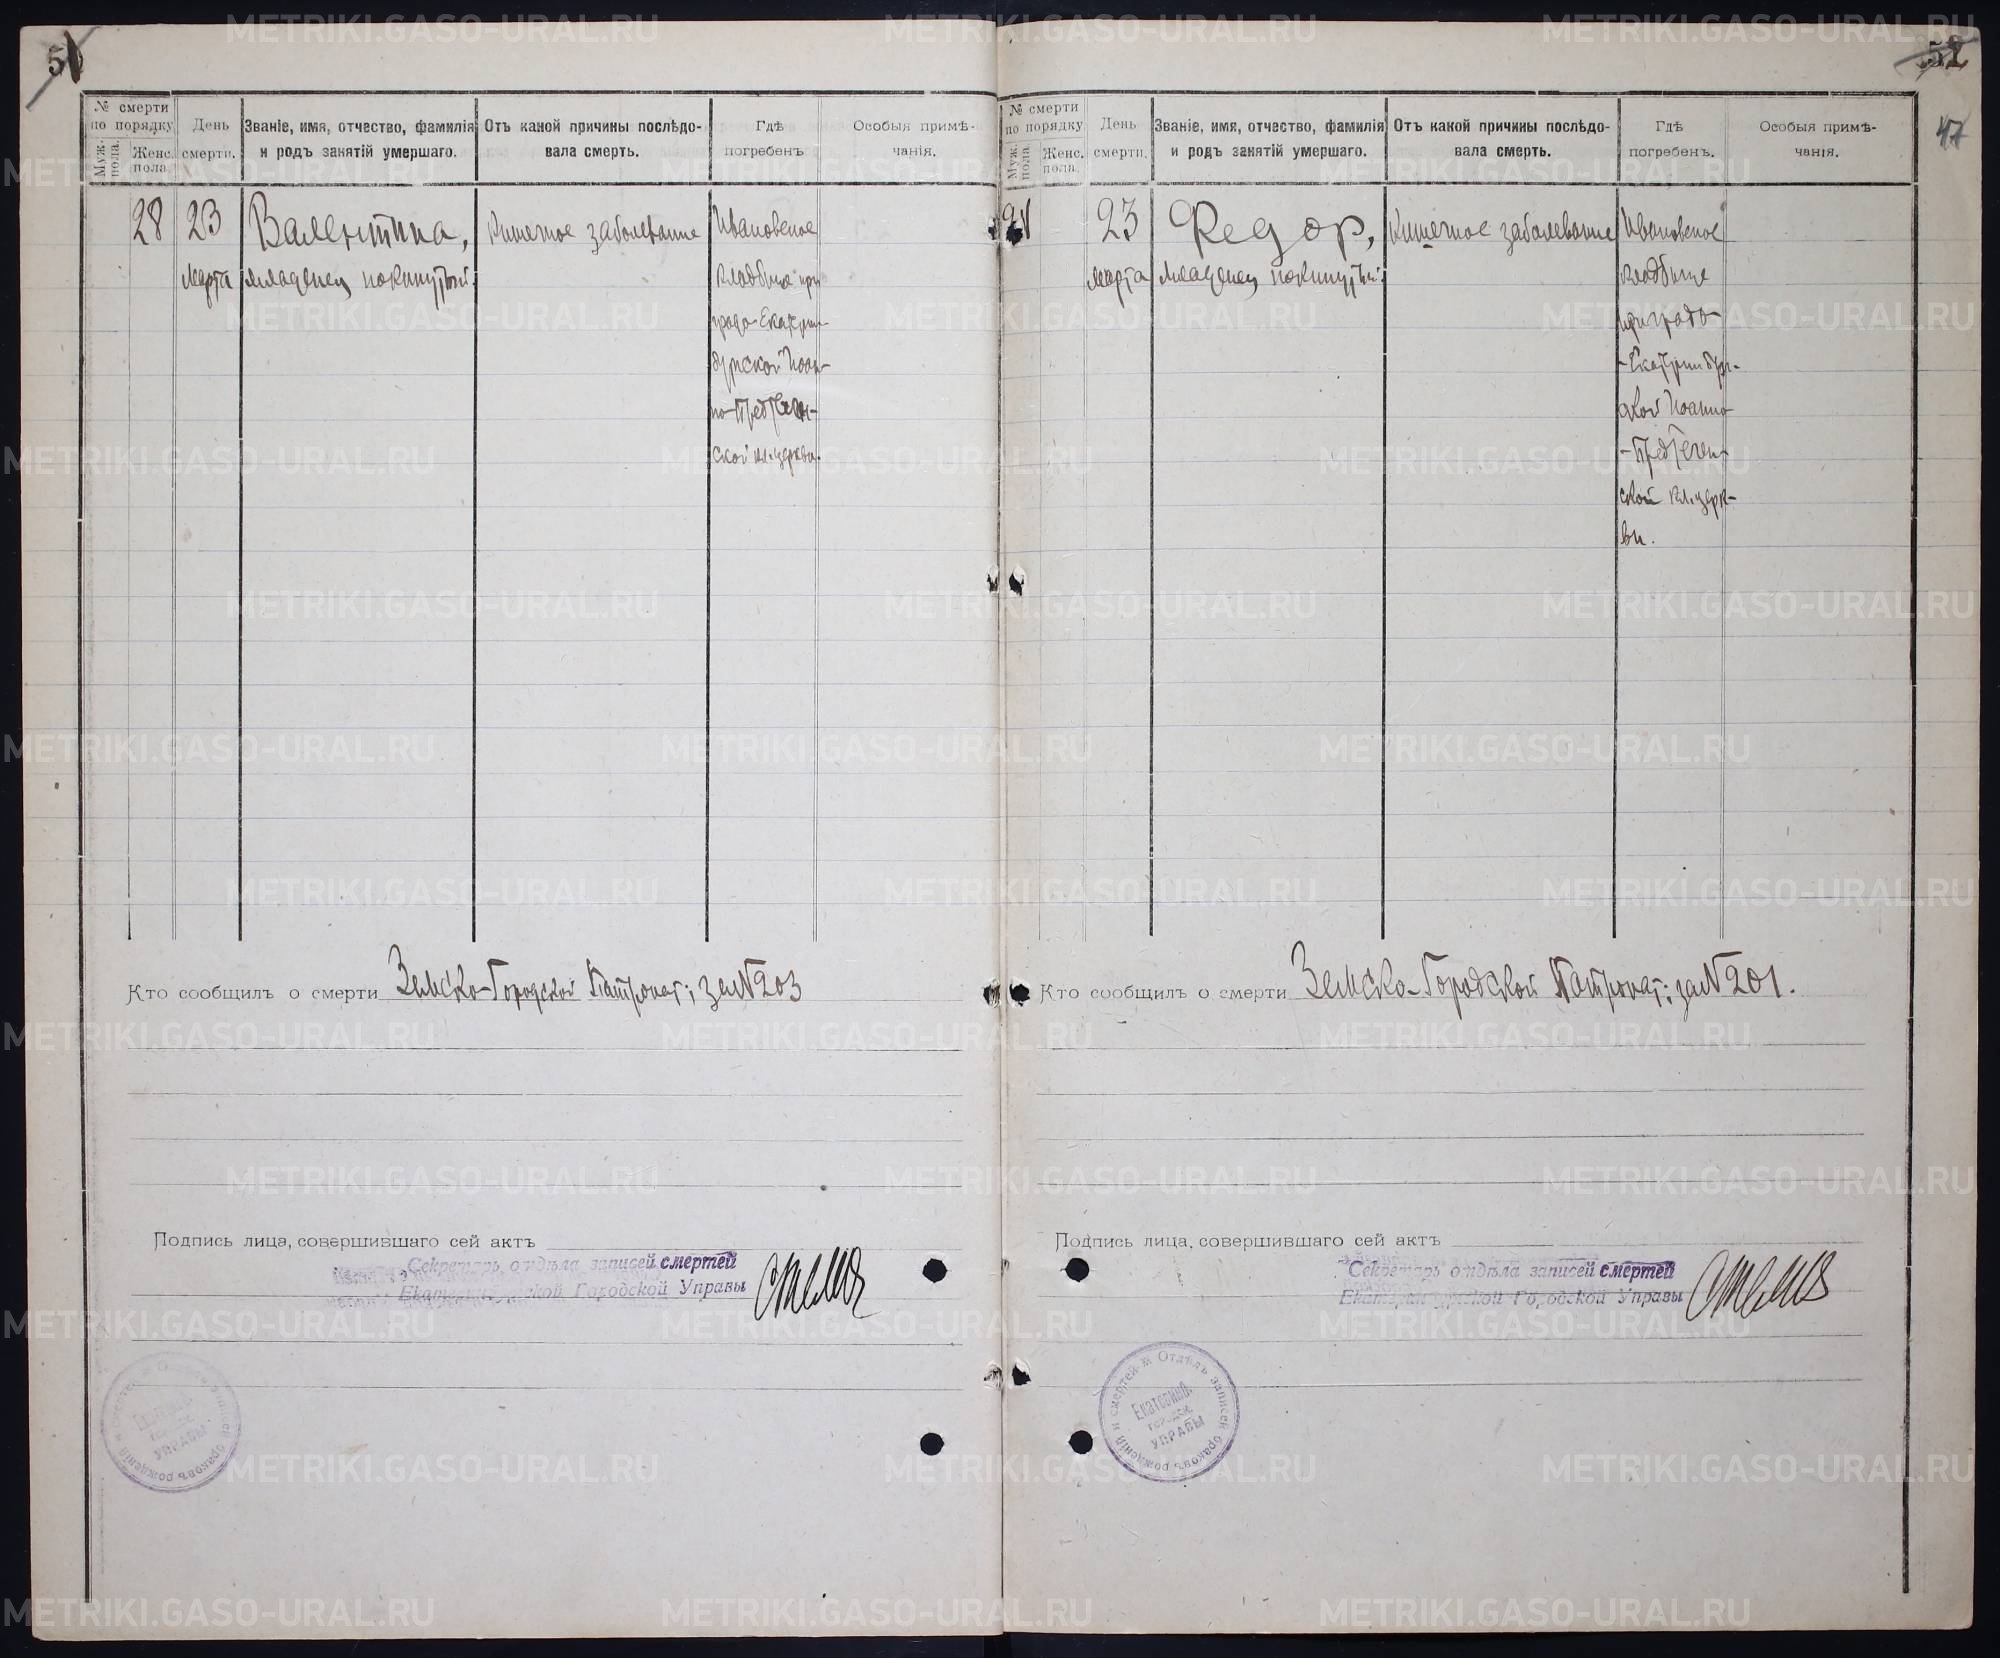 51
№ смерти по порядку
Муж. пола.
Женс. пола.
День смерти.
Званіе, имя, отчество, фамилія и родъ занятій умершаго.
Отъ какой причины послѣдовала смерть.
Гдѣ погребенъ
Особыя примѣчанія.
28
23
Марта
Валентина,
младенец покинутый.
Кишечное заболевание
Ивановское
кладбище при
градо-Екатерин-
бургской Иоан-
но-Предтечен-
ской кл. церкви.
Кто сообщилъ о смерти Земско-Городской Патронат; за №203
Подпись лица, совершившаго сей актъ
Секретарь отдѣла записей смертей
Екатеринбургской Городской Управы
52
47
№ смерти по порядку
Муж. пола.
Женс. пола.
День смерти.
Званіе, имя, отчество, фамилія и родъ занятій умершаго.
Отъ какой причины послѣдовала смерть.
Гдѣ погребенъ.
Особыя примѣчанія.
23
Марта
Федор,
младенец покинутый.
Кишечное заболевание
Ивановское
кладбище
при градо-
-Екатеринбург-
ской Иоанно-
-Предтечен-
ской кл. церк-
ви.
Кто сообщилъ о смерти Земско-Городской Патронат; за №201.
Подпись лица, совершившаго сей актъ
Секретарь отдѣла записей смертей
Екатеринбургской Городской Управы
Отдѣлъ записей браковъ рожденій и смертей
Екатеринб.
городск.
УПРАВЫ
METRIKI.GASO-URAL.RU